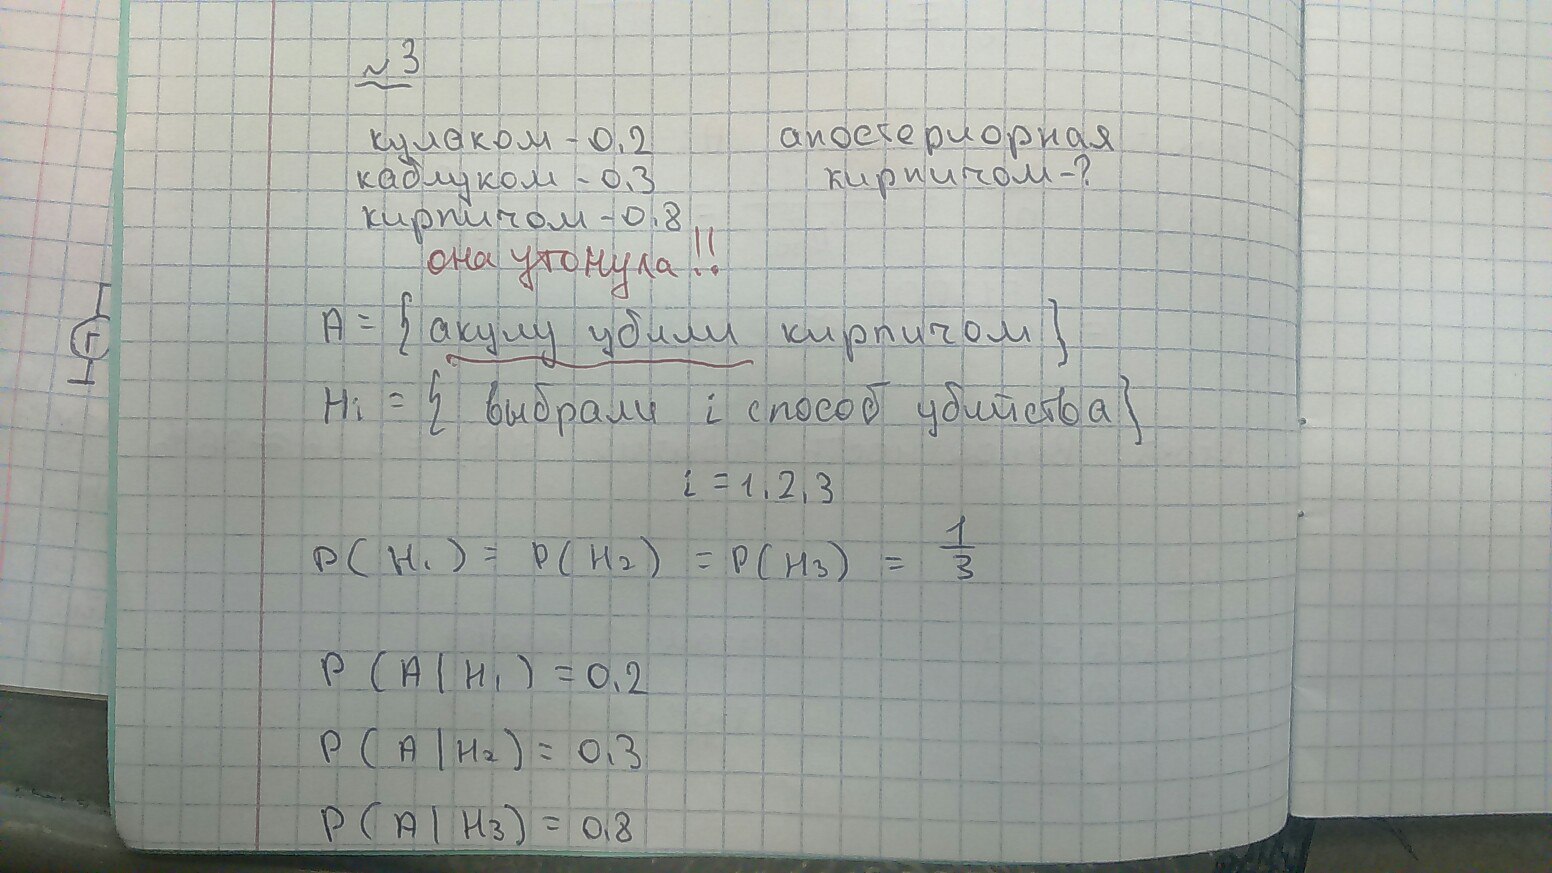 №3
кулаком - 0,2
каблуком - 0,3
кирпичом - 0,8
апостериорная
кирпичом - ?
она утонула!!
A = { акулу убили кирпичом }
Hi = { выбрали i способ убийства }
i = 1,2,3
P(H1) = P(H2) = P(H3) = 1/3
P(A|H1) = 0,2
P(A|H2) = 0,3
P(A|H3) = 0,8
Г